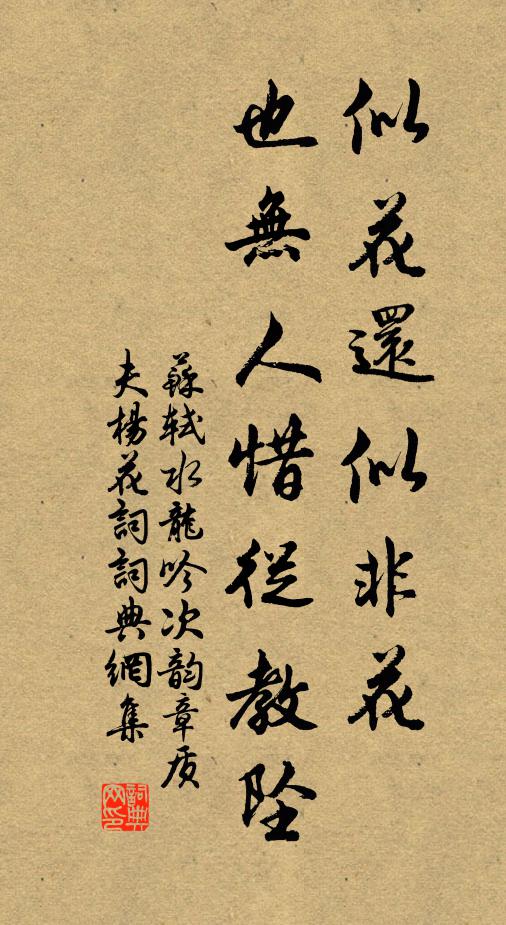 似花還似非花
也無人惜從教墜
蘇軾水龍吟次韵章质
夫楊花詞詞典網集
詞典
网印